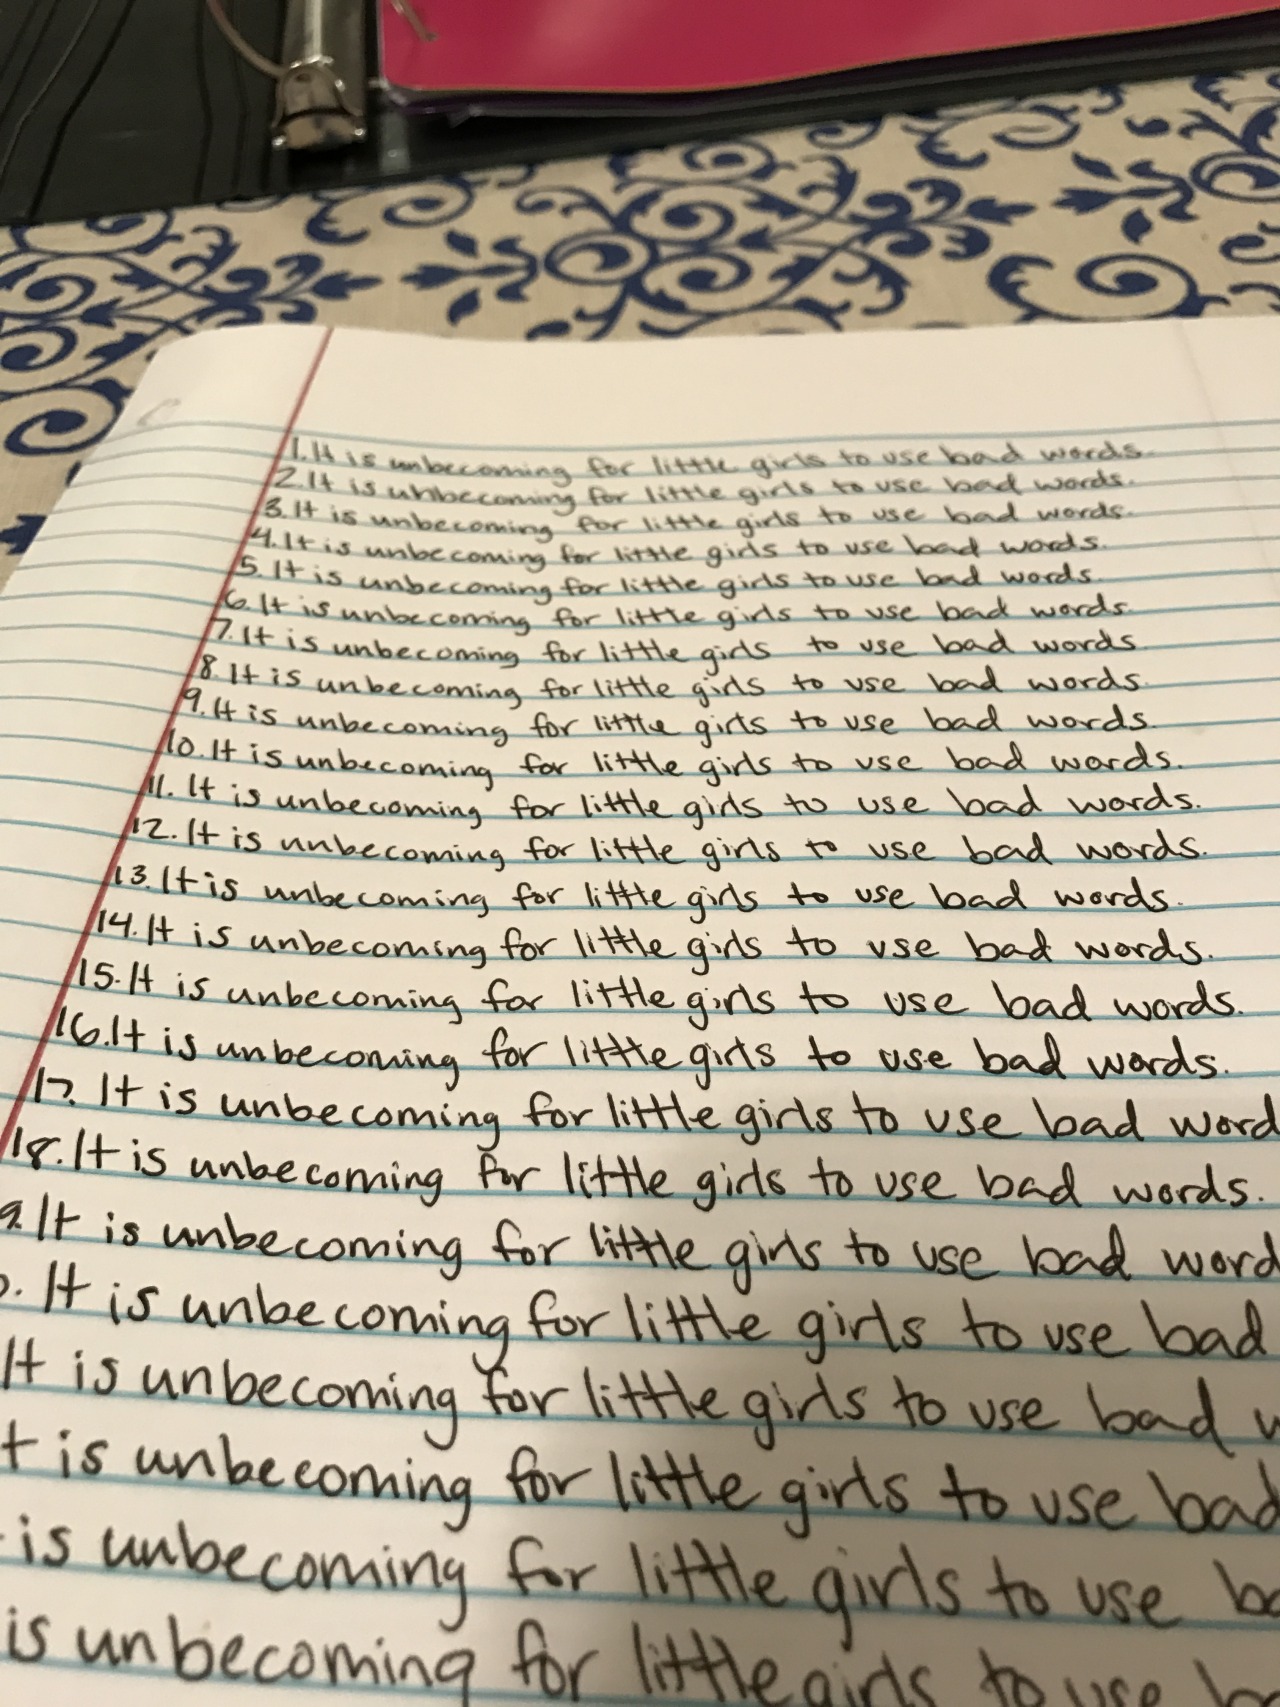 1. It is unbecoming for little girls to use bad words.
2. It is unbecoming for little girls to use bad words.
3. It is unbecoming for little girls to use bad words.
4. It is unbecoming for little girls to use bad words.
5. It is unbecoming for little girls to use bad words.
6. It is unbecoming for little girls to use bad words.
7. It is unbecoming for little girls to use bad words.
8. It is unbecoming for little girls to use bad words.
9. It is unbecoming for little girls to use bad words.
10. It is unbecoming for little girls to use bad words.
11. It is unbecoming for little girls to use bad words.
12. It is unbecoming for little girls to use bad words.
13. It is unbecoming for little girls to use bad words.
14. It is unbecoming for little girls to use bad words.
15. It is unbecoming for little girls to use bad words.
16. It is unbecoming for little girls to use bad words.
17. It is unbecoming for little girls to use bad word
18. It is unbecoming for little girls to use bad words.
9. It is unbecoming for little girls to use bad word
. It is unbecoming for little girls to use bad
It is unbecoming for little girls to use bad
t is unbecoming for little girls to use bad
is unbecoming for little girls to use
is unbecoming for little girls to use